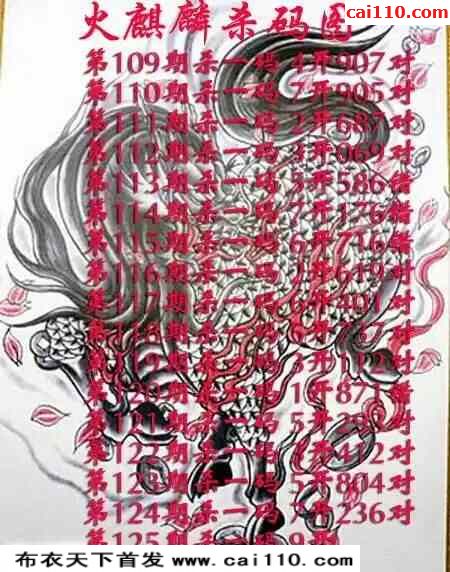 cai110.com
火麒麟杀码图
第109期杀一码 4开907对
第110期杀一码 7开905对
第111期杀一码 2开687对
第112期杀一码 3开069对
第113期杀一码 5开586错
第114期杀一码 7开176错
第115期杀一码 6开716错
第116期杀一码 开619对
第117期杀一码 开401对
第118期杀一码 对
第119期杀一码 3开112对
第120期杀一码 1开 错
第121期杀一码 5开 对
第122期杀一码 开412对
第123期杀一码 5开804对
第124期杀一码 7开236对
第125期杀一码 9开
布衣天下首发 www.cai110.com